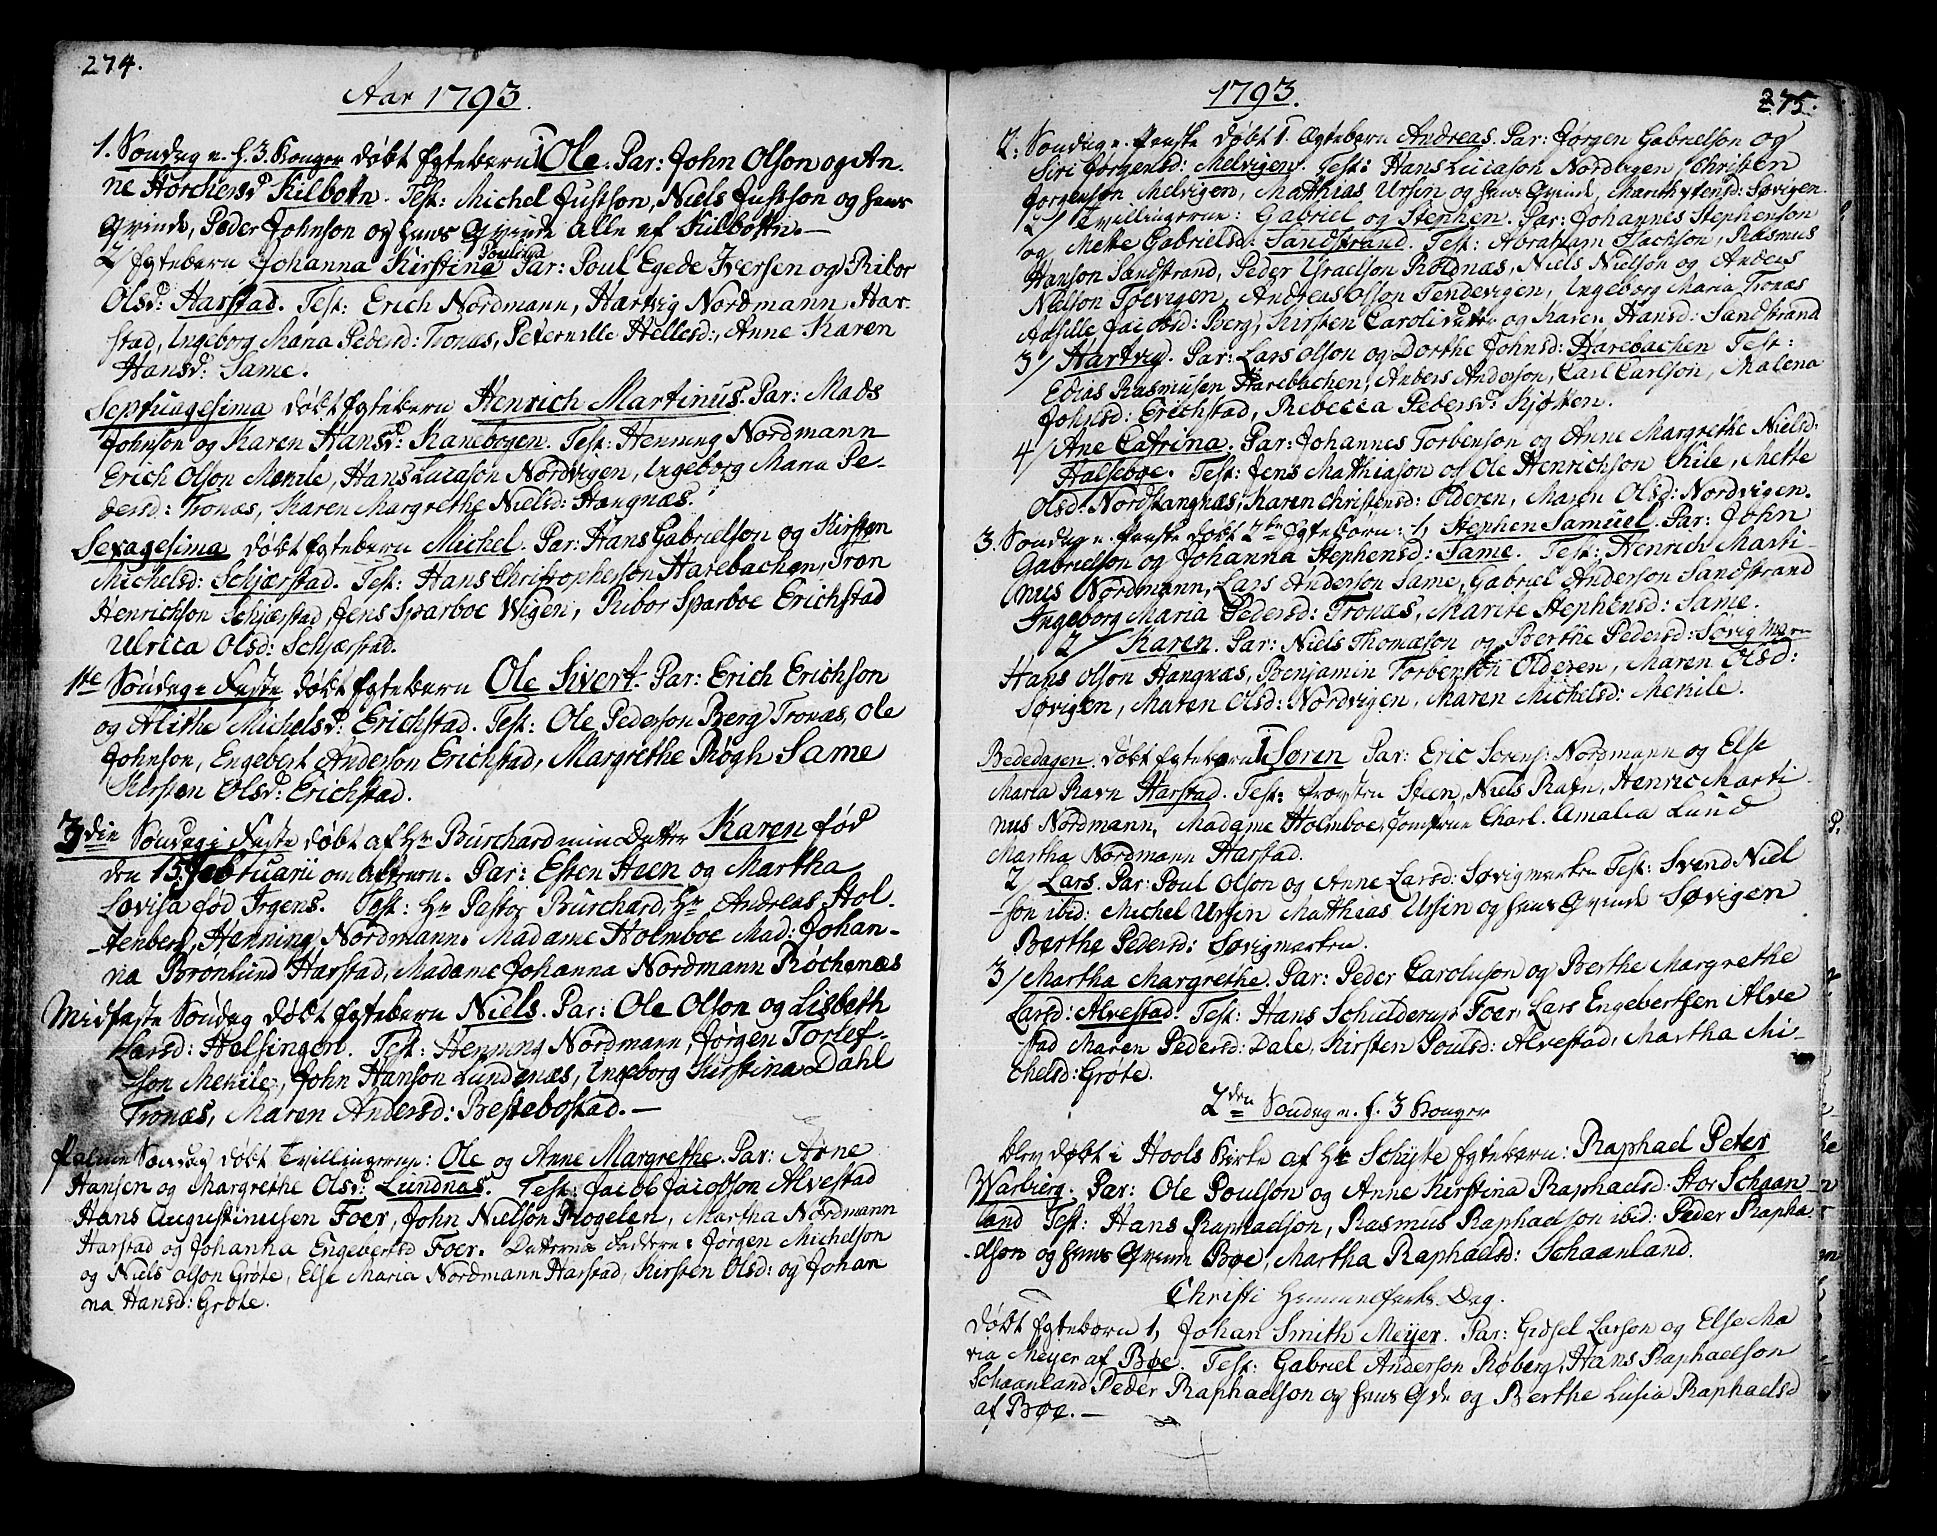 274.
Aar 1793.
1. Søndag e. h. 3 Konger døbt Egtebarn 1 Ole. Par: John Olson og An-
ne Horchersd Kilbotn. Test: Michel Justson, Niels Justson og hans
Qvinde, Peder Johnson og hans Qvinde alle af Kilbotn.—
2/ Egtebarn Johanna Kirstina Poulina Par: Poul Egede Iversen og Ribor
Olsd: Harstad. Test: Erich Nordmann, Hartvig Nordmann, Har-
stad, Ingeborg Maria Pedersd: Tronæs, Peternille Hellesd:, Anne Karen
Hansd: Same.
Septuagesima døbt Egtebarn Henrich Martinus. Par: Mads
Johnson og Karen Hansd: Kanebogen. Test: Henning Nordmann
Erich Olson Mekile, Hans Lucason Nordvigen, Ingeborg Maria Pe-
dersd: Tronæs, Karen Margrethe Nielsd: Hangnæs.
Sexagesima døbt Egtebarn Michel. Par: Hans Gabrielson og Kirsten
Michelsd: Schjærstad. Test: Hans Christopherson Harebachen, Tron
Henrichson Schjærstad, Jens Sparboe Wigen, Ribor Sparboe Erichstad
Ulrica Olsd: Schjærstad.
1te Søndag i Faste døbt Egtebarn Ole Sivert. Par: Erich Erichson
og Alithe Michelsd: Erichstad. Test: Ole Pederson Berg Tronæs, Ole
Johnson, Engebert Anderson Erichstad, Margrethe Røgh Same
Kirsten Olsd: Erichstad.
3die Søndag i Faste døbt af Hr Burchard min Datter Karen fød
den 15 Februarii om Aftenen. Par: Esten Haen og Martha
Lovisa fød Irgens. Test: Hr Pastor Burchard, Hr Andreas Hol-
tenberg, Henning Nordmann, Madame Holmboe Mad: Johan-
na Brønlund Harstad, Madame Johanna Nordmann Røchenæs
Midfaste Søndag døbt Egtebarn Niels. Par: Ole Olson og Lisbeth
Larsd: Helsingen. Test: Henning Nordmann, Jørgen Torlef-
son Mekile, John Hanson Lundenæs, Ingeborg Kirstina Dahl
Tronæs, Maren Andersd: Bestebostad.—
Palme Søndag døbt Tvillingerne: Ole og Anne Margrethe. Par: Arne
Hansen og Margrethe Olsd: Lundnæs. Test: Jacob Jacobson Alvestad
Hans Augustinusen Foer, John Nielson Rogelen, Martha Nordmann
Harstad og Johanna Engebertsd Foer. Datterens Faddere: Jørgen Michelson
og Niels Olson Grøte, Else Maria Nordmann Harstad, Kirsten Olsd: og Johan
na Hansd: Grøte.
1793.
275.
2. Søndag e. Paaske døbt 1 Ægtebarn Andreas. Par: Jørgen Gabrielson og
Siri Jørgensd: Melvigen. Test: Hans Lucason Nordvigen, Christen
Jørgenson Melvigen, Matthias Ursin og hans Qvinde, Marith Stensd: Søvigen
2/ Tvillingerne: Gabriel og Stephen. Par: Johannes Stephenson
og Mette Gabrielsd: Sandstrand. Test: Abraham Isachson, Rasmus
Hanson Sandstrand, Peder Israelson Roldnæs, Niels Nielson og Anders
Nielson Toevigen, Andreas Olson Tendevigen, Ingeborg Maria Tronæs
Aasille Jacobsd: Berg, Kirsten Caroli Datter og Karen Hansd: Sandstrand
3/ Hartvig. Par: Lars Olson og Dorthe Johnsd: Harebachen Test:
Edias Rasmusen Harebachen, Anders Anderson, Carl Carlson, Malena
Johnsd: Erichstad, Rebecca Pedersd: Kjøtten.
4/ Ane Catrina. Par: Johannes Torbenson og Anne Margrethe Nielsd:
Halseboe. Test: Jens Matthiason og Ole Henrichson Kile, Mette
Olsd: Nordhangnæs, Karen Christensd: Olderen, Maren Olsd: Nordvigen.
3. Søndag e. Paaske døbt 2de Egtebørn: 1, Stephen Samuel. Par: John
Gabrielson og Johanna Stephensd: Same. Test: Henrich Marti-
nus Nordmann, Lars Anderson Same, Gabriel Anderson Sandstrand
Ingeborg Maria Pedersd: Tronæs, Marite Stephensd: Same.
2/ Karen. Par: Niels Thomason og Berthe Pedersd: Søvigmar-
Hans Olson Hangnæs, Benjamin Torbenson Olderen, Maren Olsd:
Søvigen, Maren Olsd: Nordvigen, Maren Michelsd: Mekile.
Bededagen. døbt Egtebarn 1 Søren Par: Eric Sørens: Nordmann og Else
Maria Ravn Harstad. Test: Provsten Steen, Niels Ravn, Henric Marti-
nus Nordmann, Madame Holmboe, Jomfrue Charl. Amalia Lund
Martha Nordmann Harstad.
2/ Lars. Par: Poul Olson og Anne Larsd: Søvigmarken Test: Svend Niel
-son ibid: Michel Ursin Matthias Ursin og hans Qvinde Søvigen
Berthe Pedersd: Søvigmarken.
3/ Martha Margrethe. Par: Peder Caroluson og Berthe Margrethe
Larsd: Alvestad. Test: Hans Schielderup Foer, Lars Engebertsen Alve
-stad Maren Pedersd: Dale, Kirsten Poulsd: Alvestad, Martha Mi-
chelsd: Grøte.
2den Søndag e. h. 3 Konger
blev døbt i Hools Kirke af Hr Schytte Egtebarn: Raphael Peter
Warbierg. Par: Ole Poulson og Anne Kirstina Raphaelsd: Stor Schaan
land Test: Hans Raphaelson, Rasmus Raphaelson ibid: Peder Rapha-
elson og hans Qvinde Bøe, Martha Raphaelsd: Schaanland.
Christi Himmelfarts Dag.
døbt Egtebørn 1, Johan Smith Meyer. Par: Gidsel Larson og Else Ma
ria Meyer af Bøe. Test: Gabriel Anderson Røberg, Hans Raphaelson
Schaanland Peder Raphaelson og hans Qvde og Berthe Lusia Raphaelsd
af Bøe.—